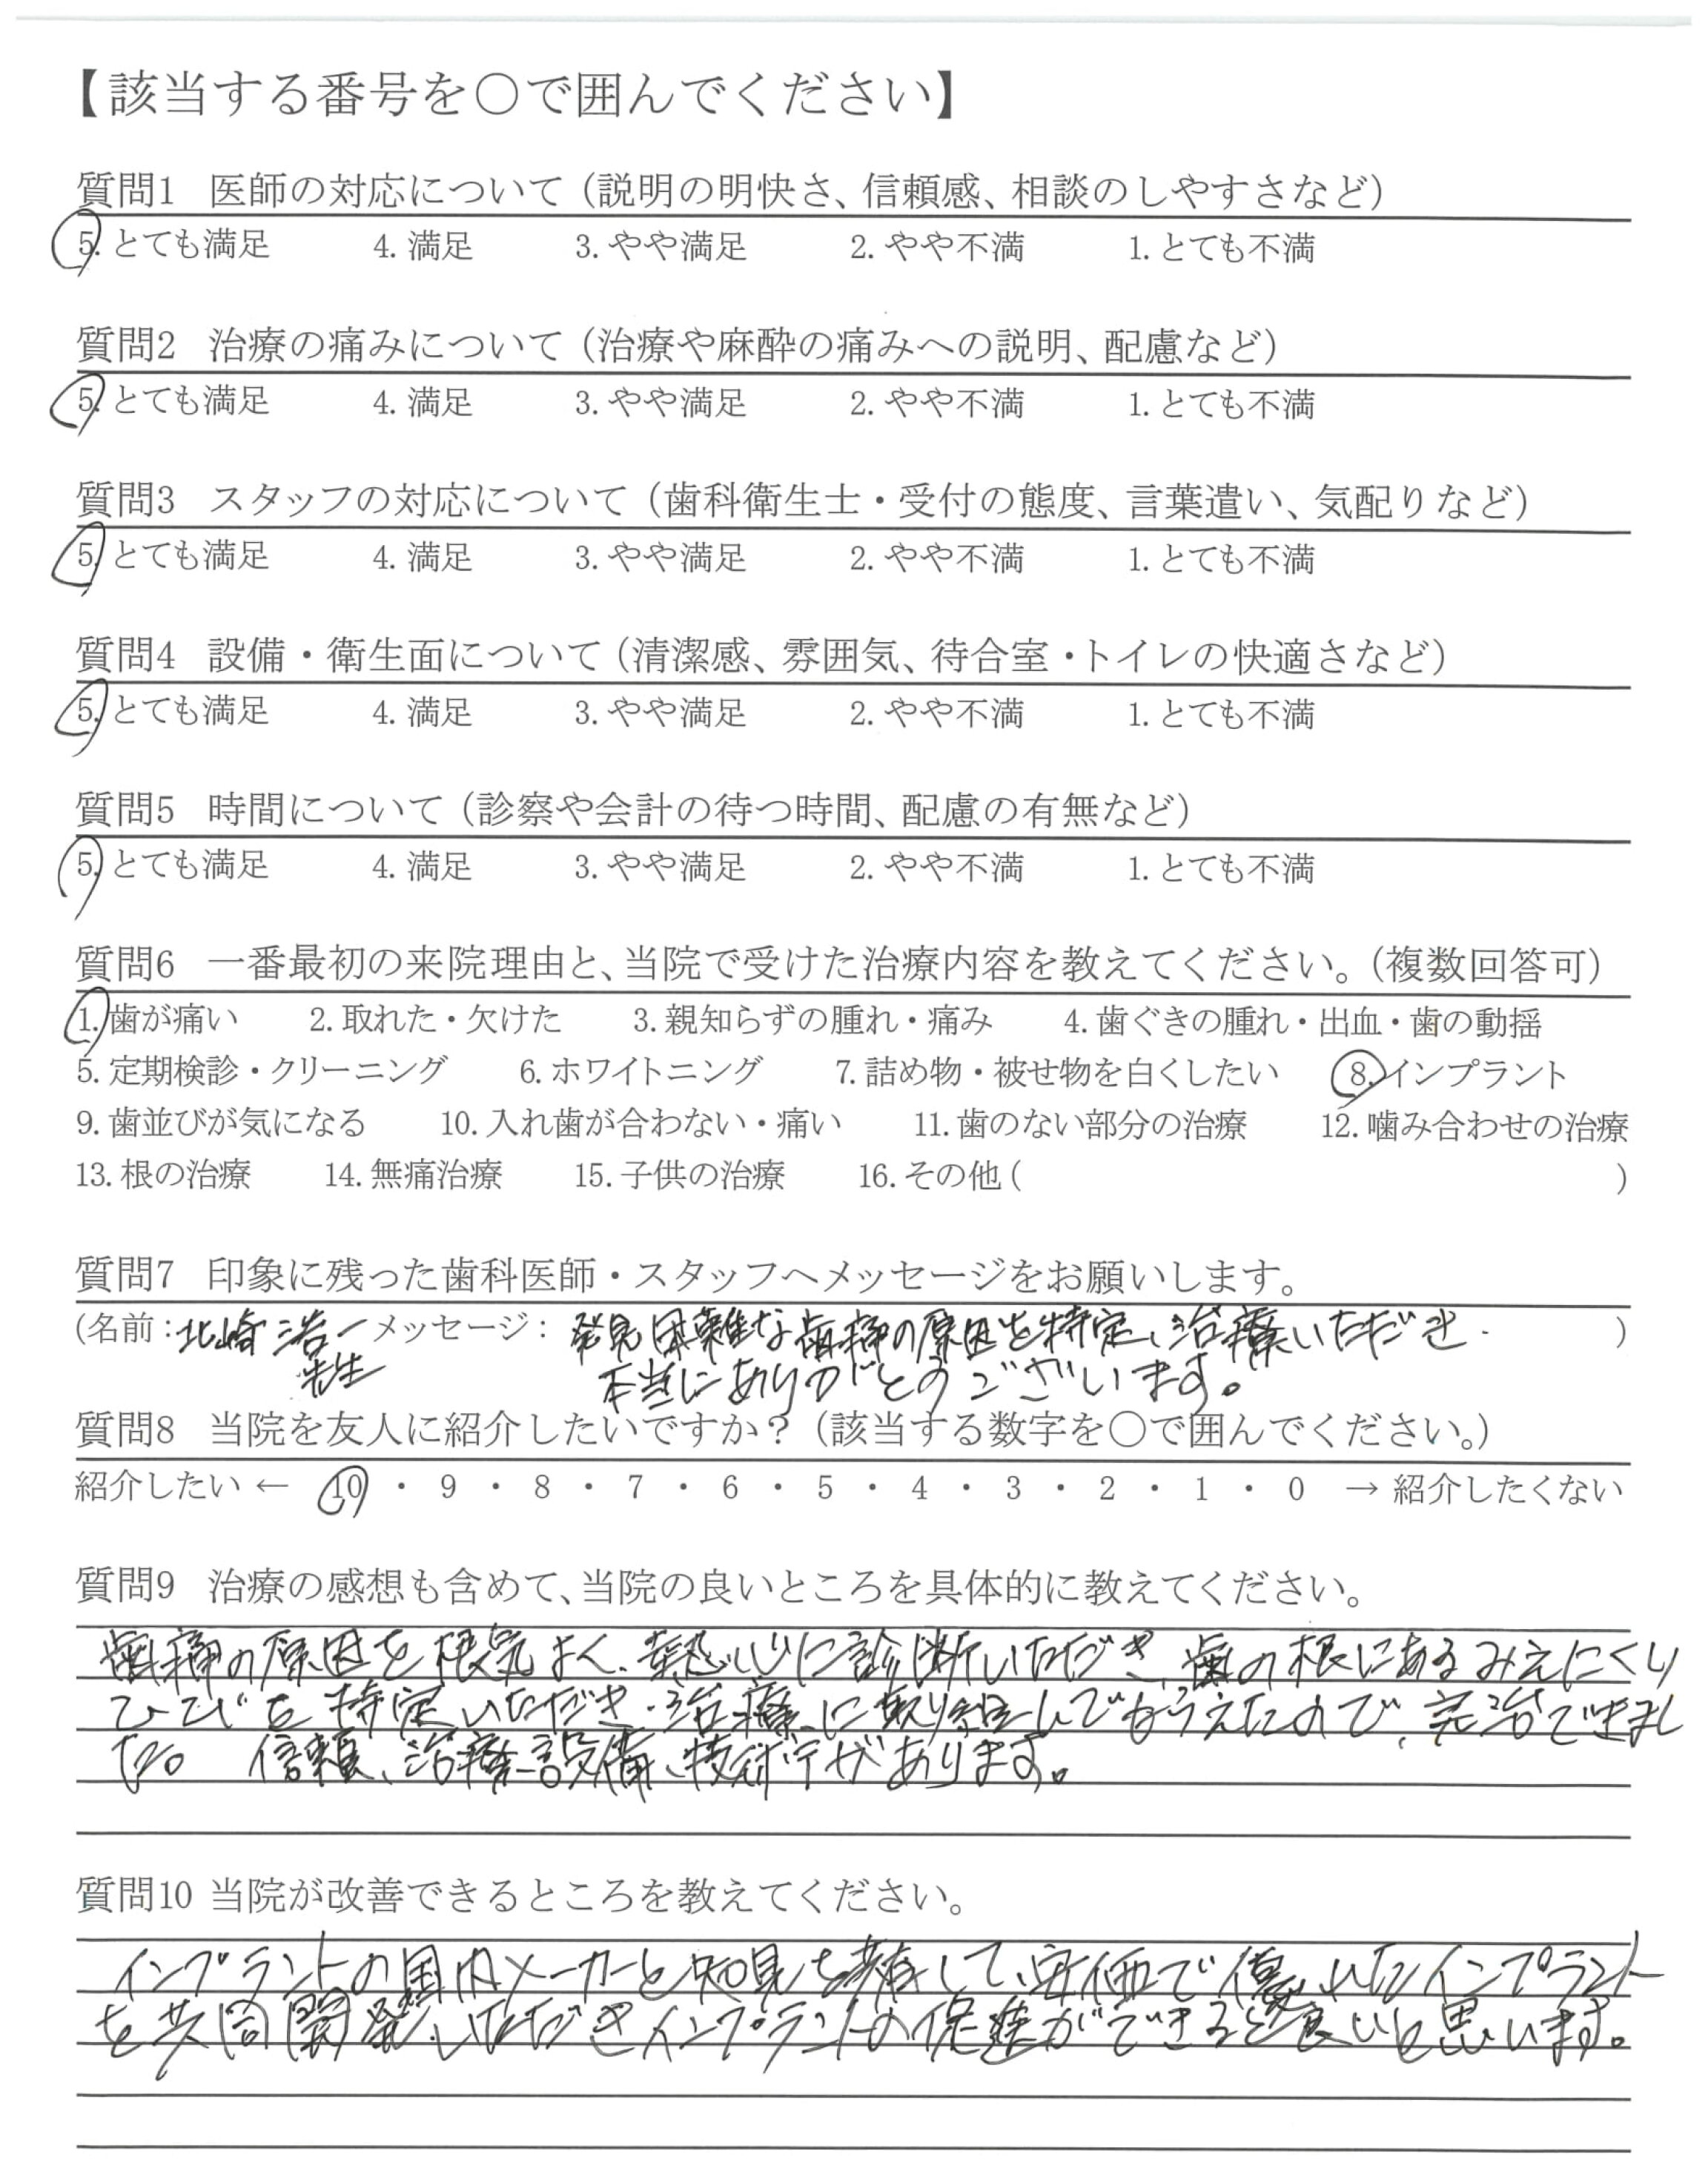 【該当する番号を○で囲んでください】
質問1 医師の対応について（説明の明快さ、信頼感、相談のしやすさなど）
5. とても満足 4. 満足 3. やや満足 2. やや不満 1. とても不満
質問2 治療の痛みについて（治療や麻酔の痛みへの説明、配慮など）
5. とても満足 4. 満足 3. やや満足 2. やや不満 1. とても不満
質問3 スタッフの対応について（歯科衛生士・受付の態度、言葉遣い、気配りなど）
5. とても満足 4. 満足 3. やや満足 2. やや不満 1. とても不満
質問4 設備・衛生面について（清潔感、雰囲気、待合室・トイレの快適さなど）
5. とても満足 4. 満足 3. やや満足 2. やや不満 1. とても不満
質問5 時間について（診察や会計の待つ時間、配慮の有無など）
5. とても満足 4. 満足 3. やや満足 2. やや不満 1. とても不満
質問6 一番最初の来院理由と、当院で受けた治療内容を教えてください。（複数回答可）
1. 歯が痛い 2. 取れた・欠けた 3. 親知らずの腫れ・痛み 4. 歯ぐきの腫れ・出血・歯の動揺
5. 定期検診・クリーニング 6. ホワイトニング 7. 詰め物・被せ物を白くしたい 8. インプラント
9. 歯並びが気になる 10. 入れ歯が合わない・痛い 11. 歯のない部分の治療 12. 噛み合わせの治療
13. 根の治療 14. 無痛治療 15. 子供の治療 16. その他（ ）
質問7 印象に残った歯科医師・スタッフへメッセージをお願いします。
（名前：北崎 浩一 メッセージ： 発見困難な歯痛の原因を特定、治療いただき ）
先生 本当にありがとうございます。
質問8 当院を友人に紹介したいですか？（該当する数字を○で囲んでください。）
紹介したい ← 10 ・ 9 ・ 8 ・ 7 ・ 6 ・ 5 ・ 4 ・ 3 ・ 2 ・ 1 ・ 0 → 紹介したくない
質問9 治療の感想も含めて、当院の良いところを具体的に教えてください。
歯痛の原因を根気よく、熱心に診断いただき、歯の根にあるみえにくい
ひびを特定いただき、治療に取り組んでもらえたので、完治できまし
た。 信頼、治療設備、技術力があります。
質問10 当院が改善できるところを教えてください。
インプラントの国内メーカーと知見を共有して、安価で優れたインプラント
を共同開発いただきインプラントの促進ができると良いと思います。